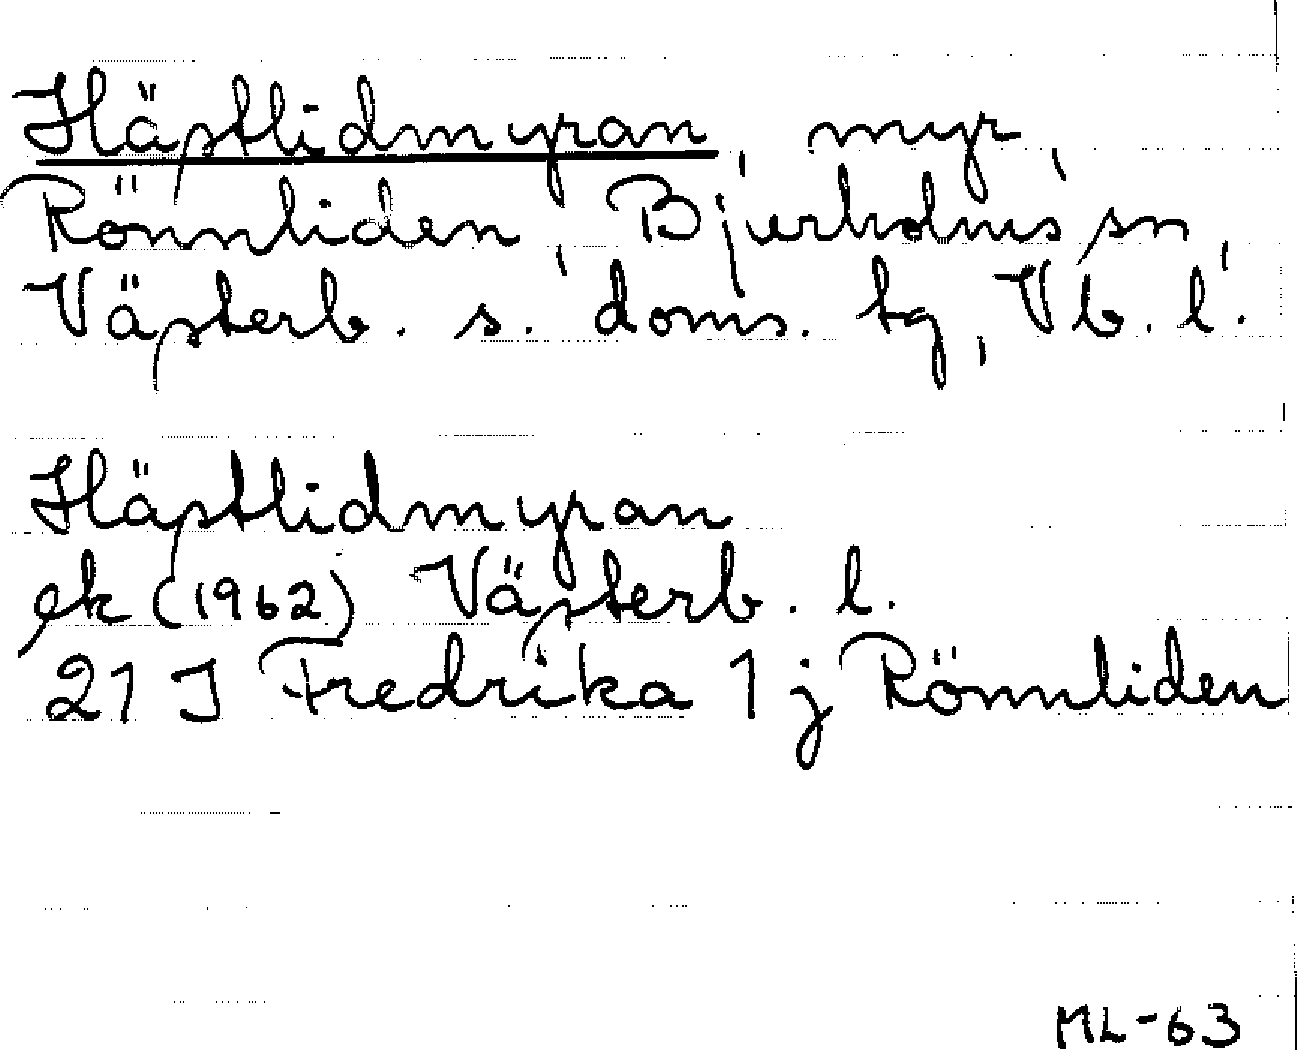 Hästlidmyran, myr,
Rönnliden, Bjurholms sn,
Västerb. s. doms. tg, Vb. l.
Hästlidmyran
ek (1962) Västerb. l.
21 J Fredrika 1 j Rönnliden
ML-63